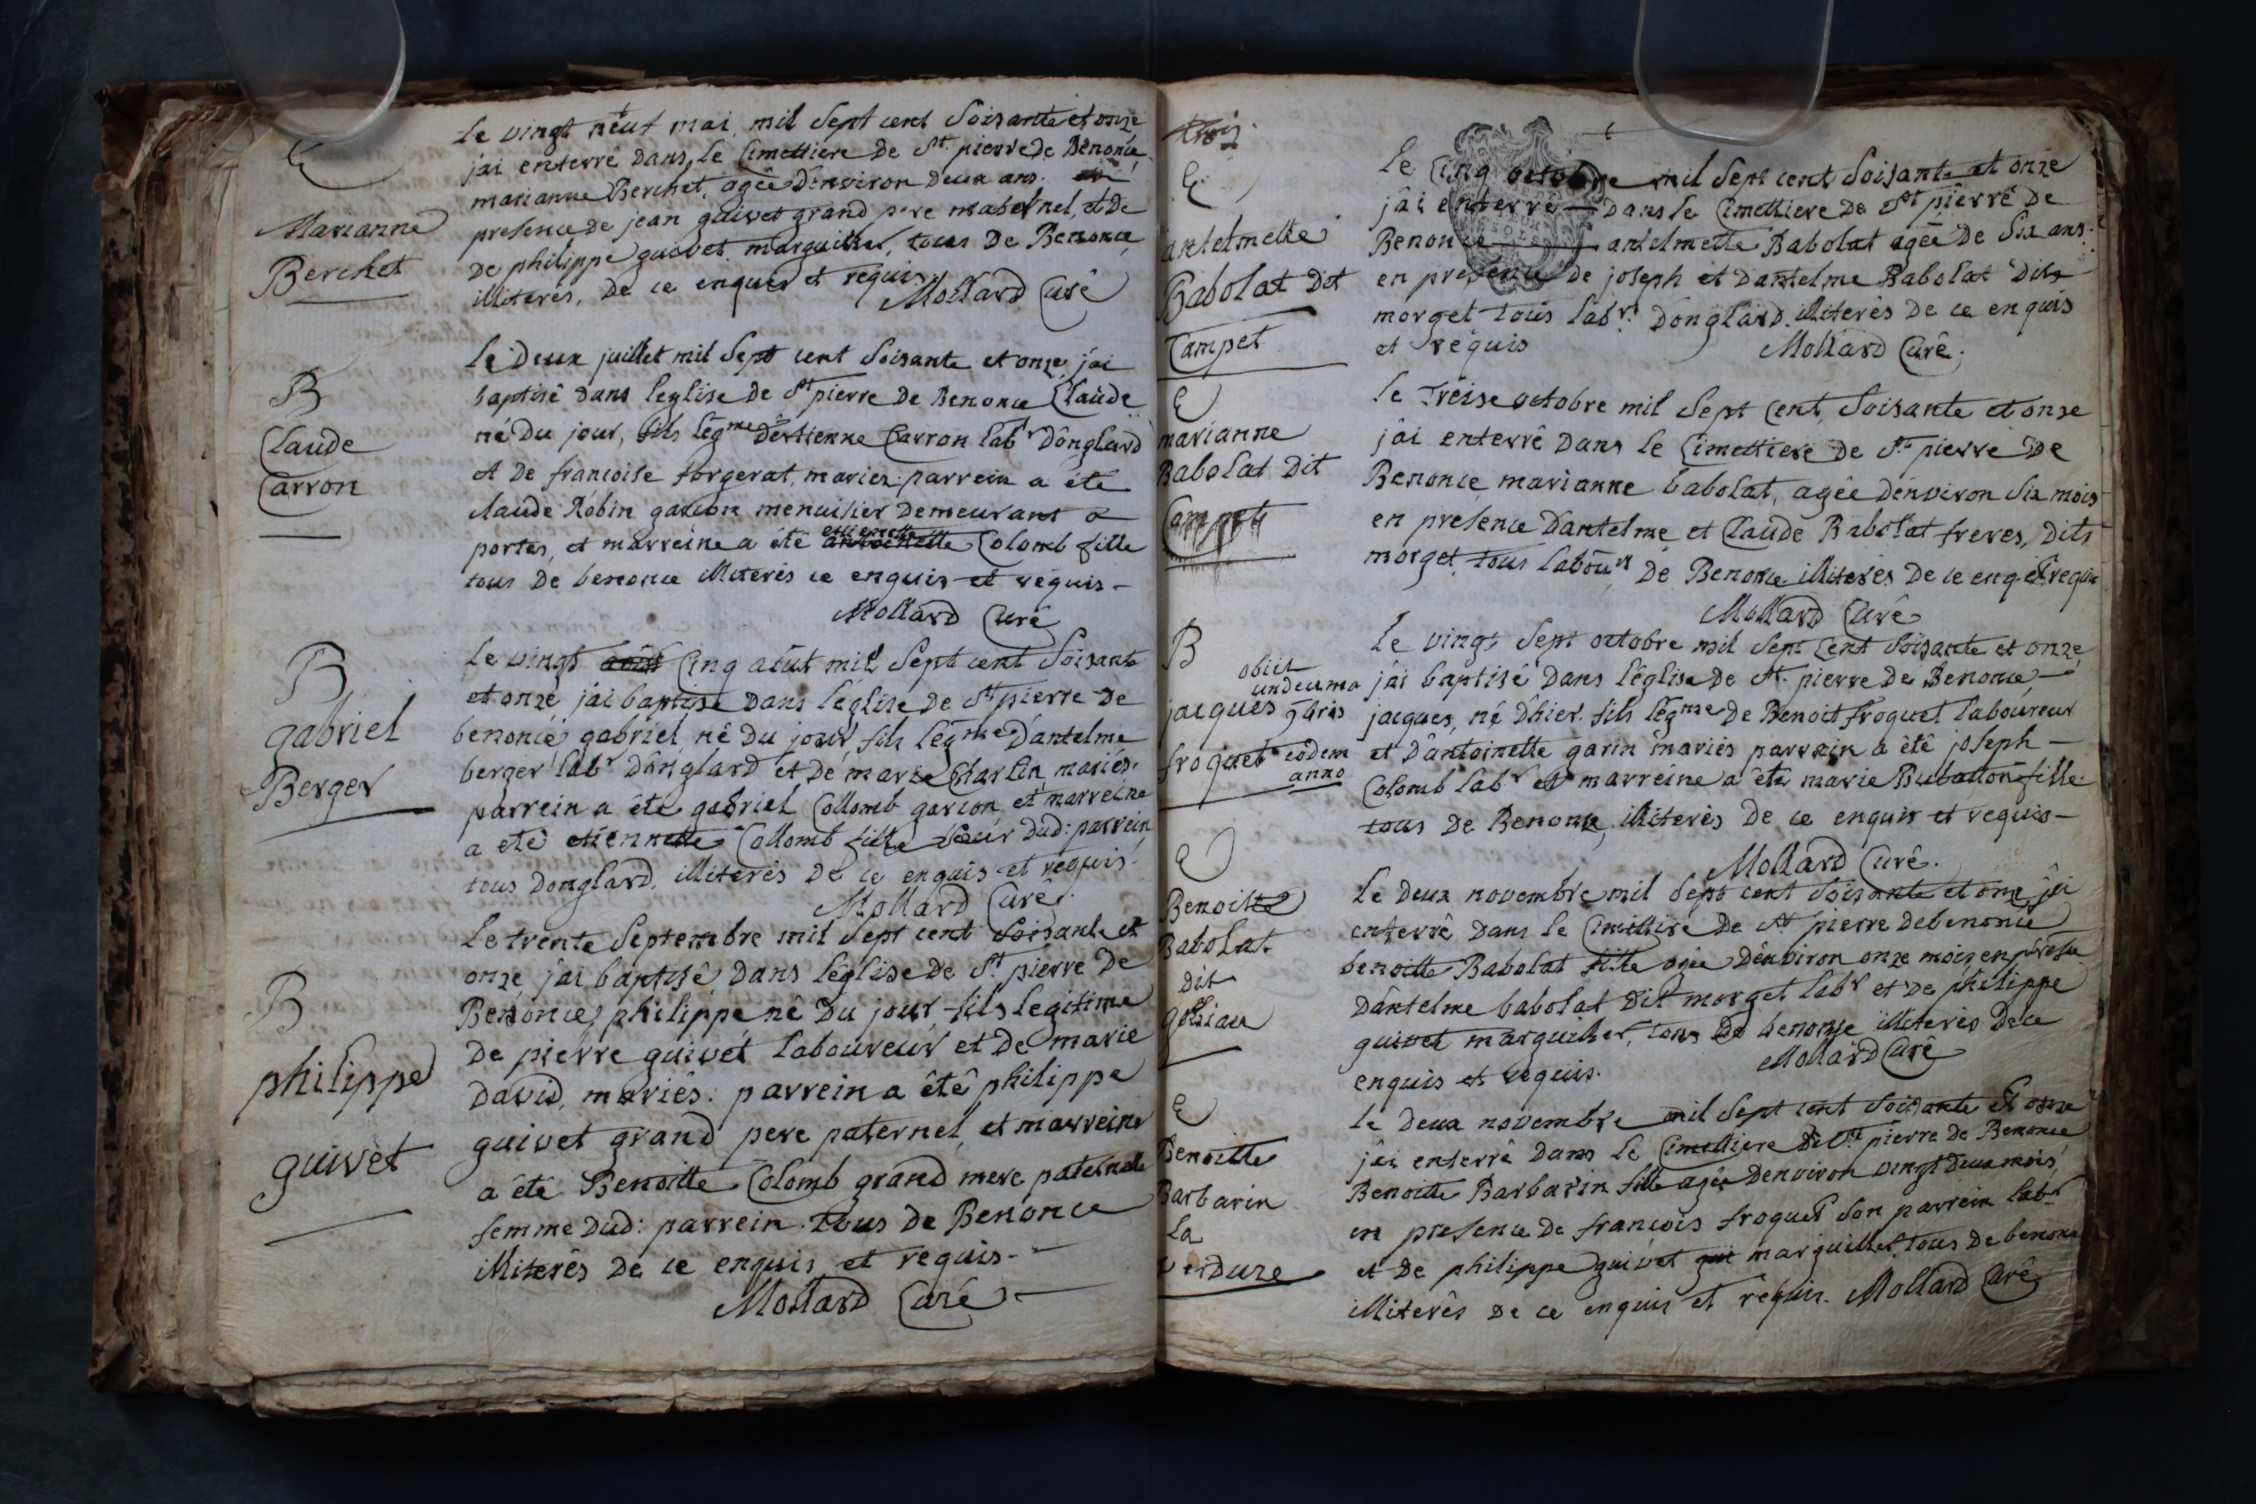 E
Marianne
Berchet
le vingt neuf mai mil sept cent soisante et onze
j'ai enterré dans le Cimettiere de St. pierre de Benonce
marianne Berchet, agée d'environ deux ans. en
presence de jean guivet grand pere maternel, et de
de philippe guivet marguiller, tous de Benonce
illiterés, de ce enquis et requis.
Mollard Curé
B
Claude
Carron
le Deux juillet mil sept cent soisante et onze, j'ai
baptisé dans leglise de St pierre de Benonce Claude
né du jour, fils légme d'estienne Carron labr d'onglard
et de francoise forgerat, mariez: parrein a été
claude Robin garcon menuisier demeurant a
portes, et marreine a été antoinette estiennette Colomb fille
tous de benonce illiterés ce enquis et requis -
Mollard Curé
B
gabriel
Berger
le vingt août Cinq aôut mil sept cent soisante
et onze j'ai baptisé dans l'église de St pierre de
benonce gabriel né du jour fils légme d'antelme
berger labr d'onglard et de marie Charlin mariés.
parrein a été gabriel Collomb garcon et marreine
a eté etiennette Collomb fille soeur dud: parrein
tous donglard, illiterés de ce enquis et requis.
Mollard Curé.
B
philippe
guivet
le trente septembre mil sept cent soisante et
onze j'ai baptisé dans l'église de St pierre de
Benonce philippe né du jour fils legitime
de pierre guivet laboureur et de marie
david, mariés: parrein a été philippe
guivet grand pere paternel, et marreine
a été Benoitte Colomb grand mere paternelle
femme dud: parrein tous de Benonce
illiterés de ce enquis et requis. -
Mollard Curé -
trois.
E
antelmette
Babolat dit
Campet
le Cinq octobre mil sept cent soisante et onze
j'ai enterré dans le Cimettiere de St pierre de
Benonce antelmette Babolat agée de six ans.
en presence de joseph et d'antelme Babolat dits
morget tous labrs. d'onglard. illiterés de ce enquis
et requis
Mollard Curé.
E
marianne
Babolat dit
Campet
le Treise octobre mil sept cent soisante et onse
j'ai enterré dans le Cimettiere de St. pierre de
Benonce marianne babolat, agée d'environ six mois
en presence d'antelme et Claude Babolat freres, dits
morget, tous labours de Benonce illiterés de ce enq. et requis
Mollard Curé
B
jacques
froquet
obiit
undecima
9bris
eodem
anno
le vingt sept octobre mil sept cent soisante et onze
j'ai baptisé dans l'église de St. pierre de Benonce -
jacques, né d'hier. fils légme de Benoit froquet laboureur
et d'antoinette garin mariés parrein a été joseph -
Colomb labr et marreine a été marie Bubatton fille
tous de Benonce, illiterés de ce enquis et requis -
Mollard Curé.
E
Benoitte
Babolat
dit
le deux novembre mil sept cent soisante et onze j'ai
enterré dans le Cimettiere de St pierre de benonce
benoitte Babolat fille agée d'environ onze mois en presence
d'antelme babolat dit morget labr et de philippe
guivet marguiller, tous de benonce illiterés de ce
enquis et requis.
Mollard Curé
E
Benoitte
Barbarin
la
verduze
le deux novembre mil sept cent soisante et onze
j'ai enterré dans le Cimettiere de St. pierre de Benonce
Benoitte Barbarin fille agée d'environ vingt deux mois,
en presence de francois froquet son parrein labr
et de philippe guivet qui marguiller, tous de benonce
illiterés de ce enquis et requis. Mollard Curé